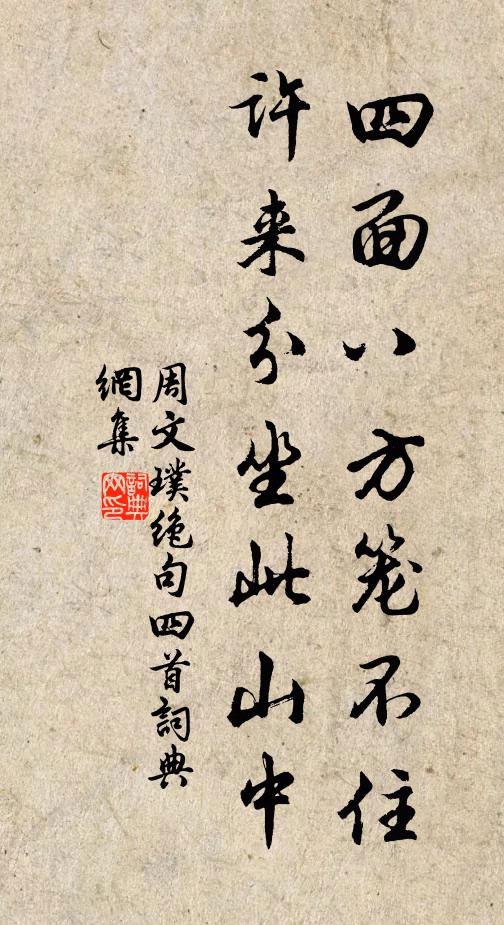 四面八方笼不住
許来分坐此山中
周文璞绝句四首詞典
網集
詞典
网印